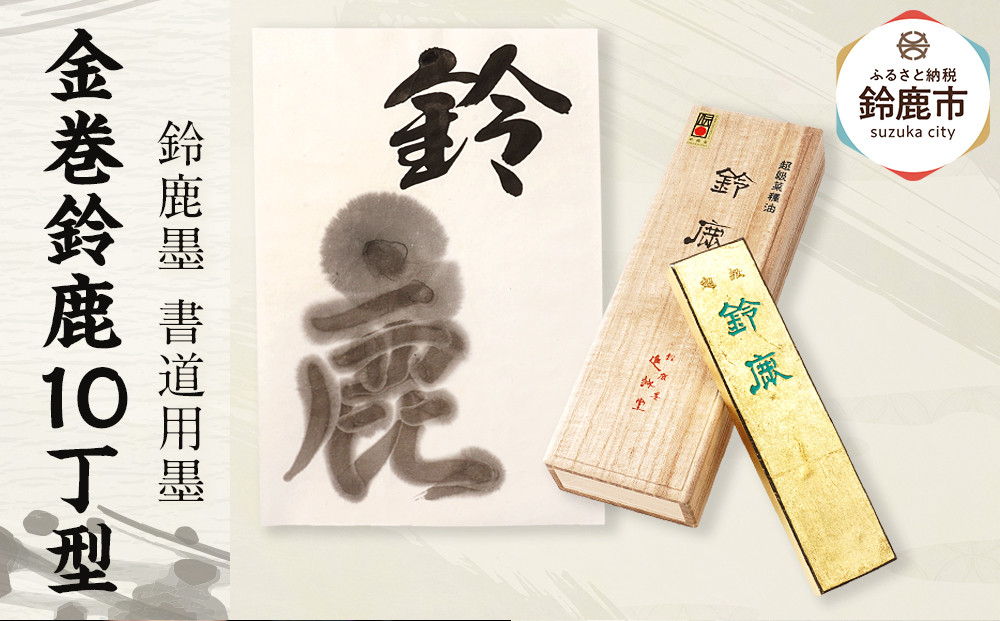 金巻鈴鹿10丁型
鈴鹿墨 書道用墨
鈴
鹿
超級菜種油
鈴鹿
超級
鈴鹿
ふるさと納税
鈴鹿市
suzuka city